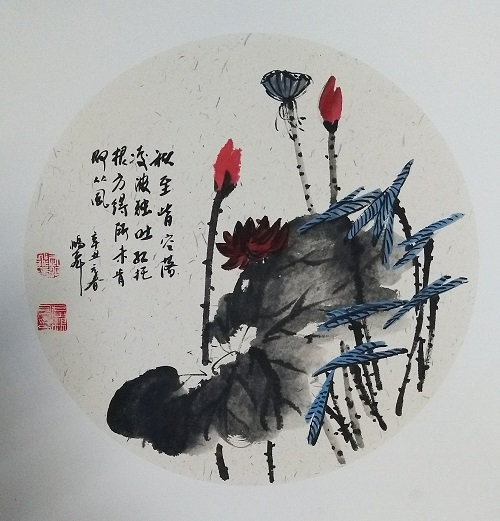 秋至皆空落
凌波独吐红托
根方得所未肯
即从风
辛丑之春